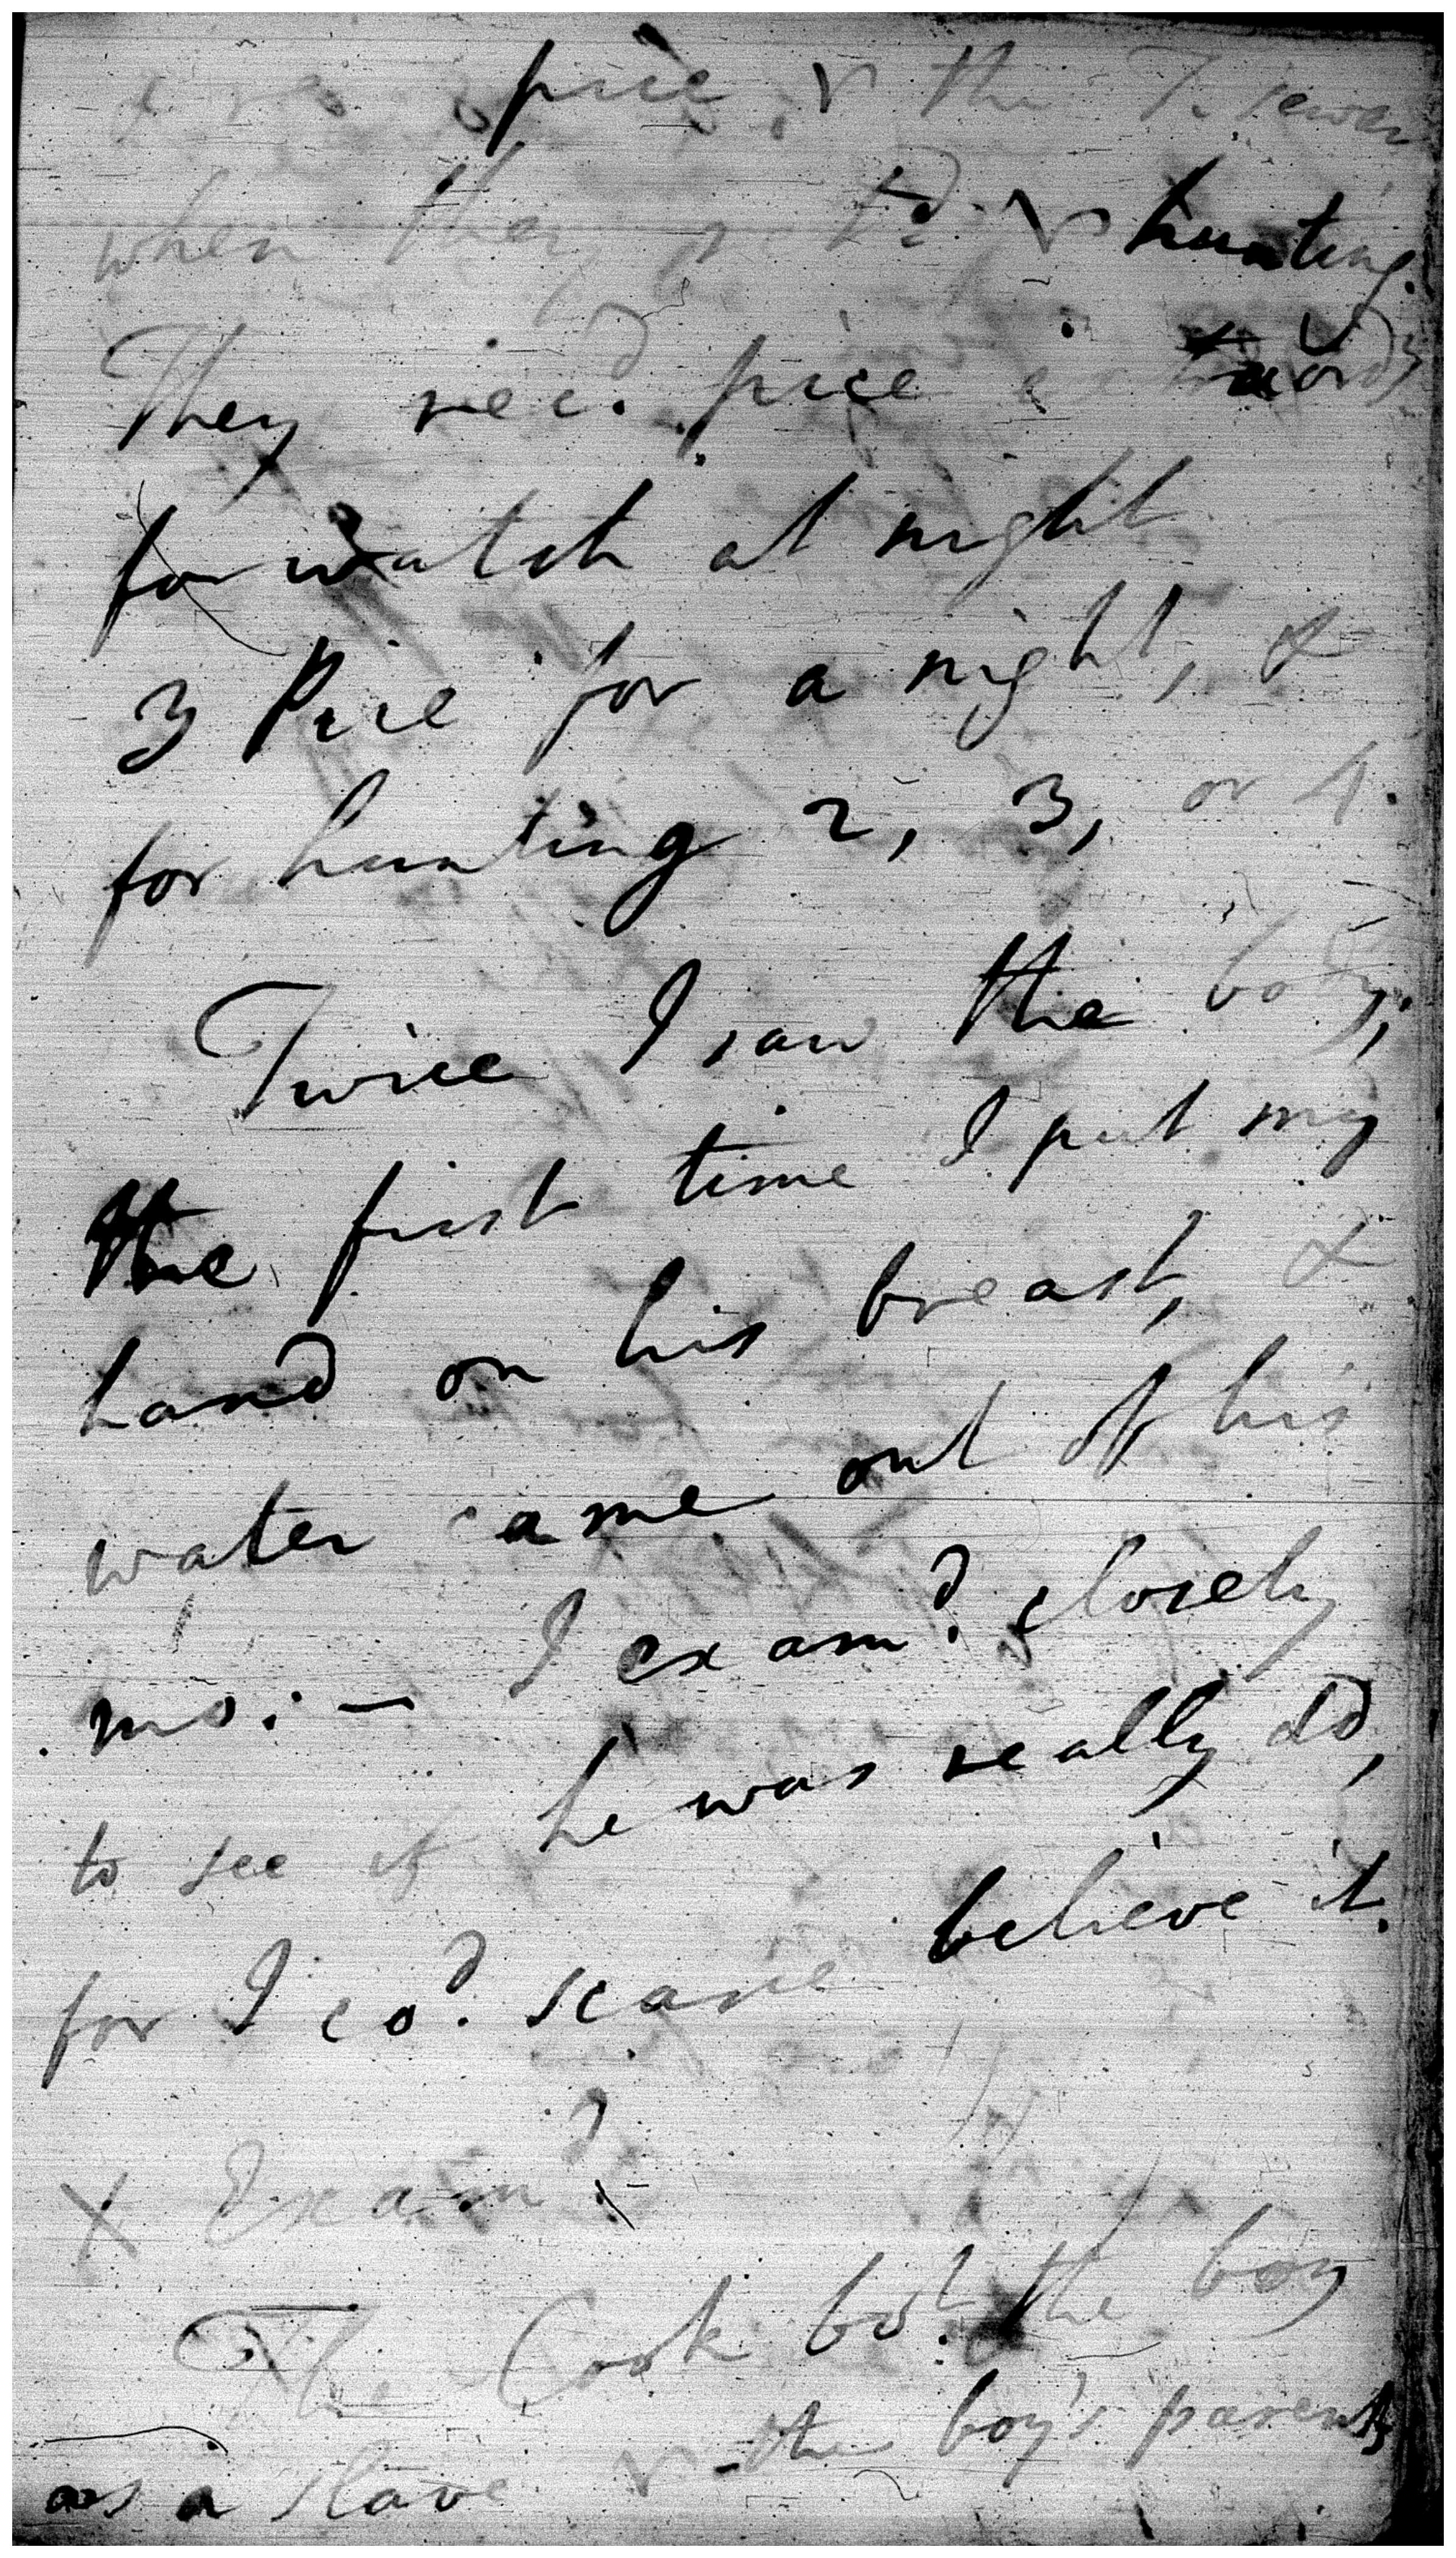 pice, the T. sewer
when they hunting.
They recd. pice
for watch at night
3 Pice for a night, &
for hunting 2, 3, or 4.
Twice I saw the body;
the first time I put my
hand on his breast, &
water came out of his
mo: — I examd. closely
to see if he was really dd,
for I cod. scarce believe it.
X Examd.
The Cook bot. the boy
as a slave the boy's parents